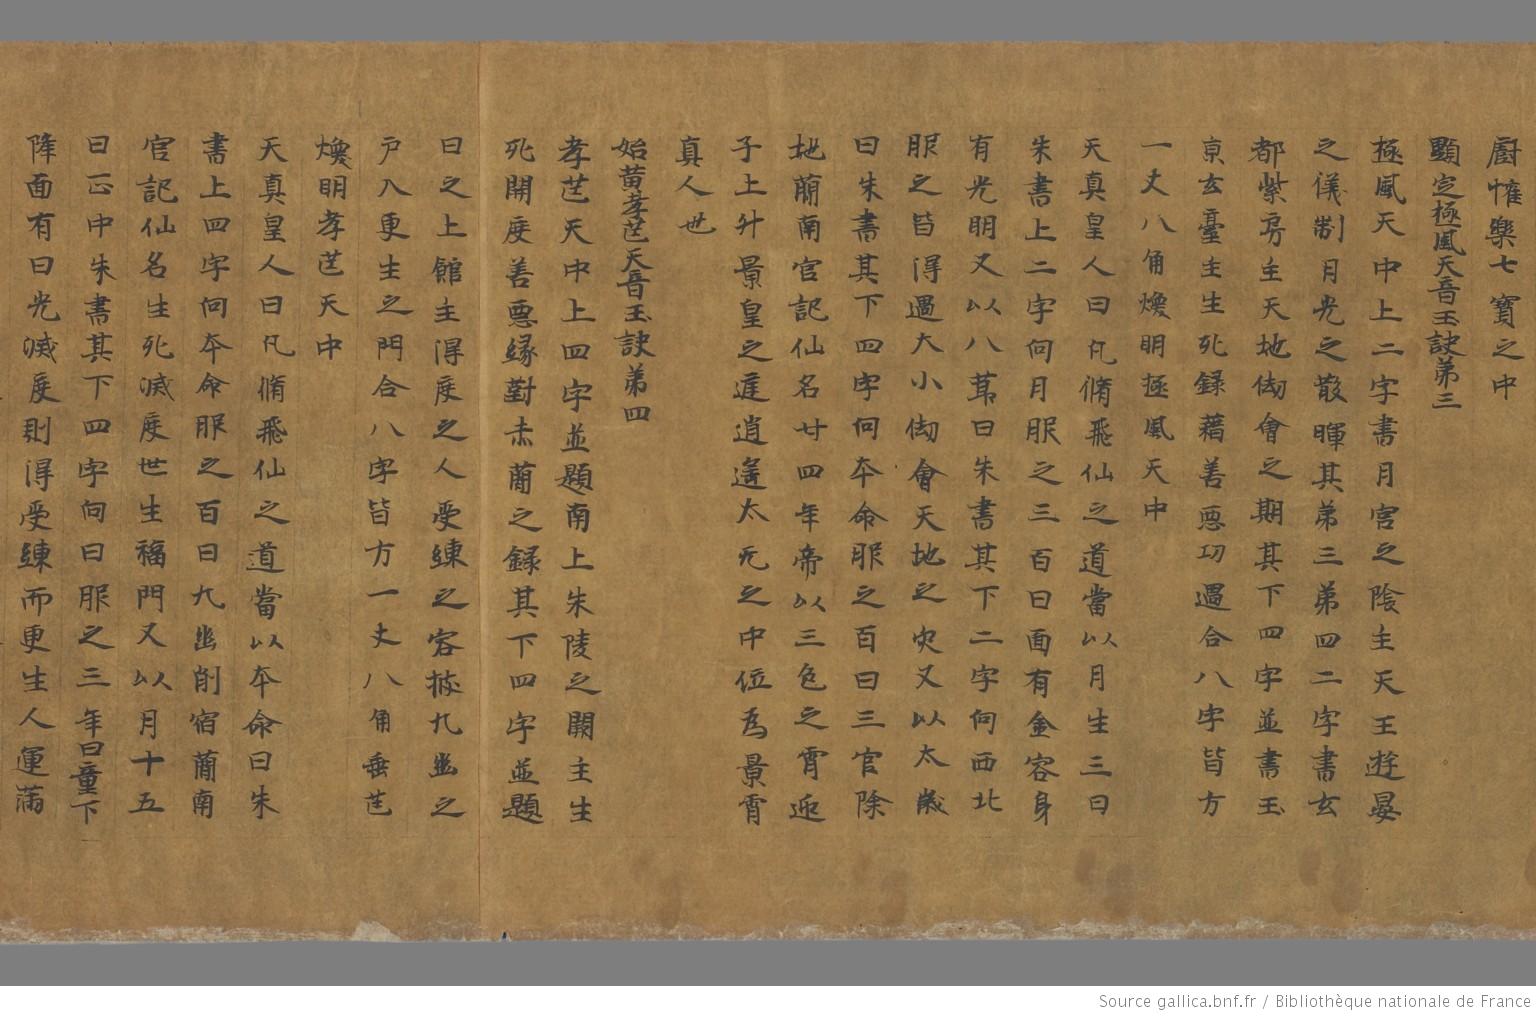 廚帷樂七寶之中
顯定極風天音玉訣第三
極風天中上二字書月宮之陰主天王遊晏
之儀制月光之散暉其第三第四二字書玄
都紫房主天地劫會之期其下四字並書玉
京玄臺主生死錄藉善惡功過合八字皆方
一丈八角煥明極風天中
天真皇人曰凡脩飛仙之道當以月生三日
朱書上二字向月服之三百日面有金容身
有光明又以八節日朱書其下二字向西北
服之皆得過大小劫會天地之灾又以太歲
日朱書其下四字向本命服之百日三官除
地簡南宮記仙名廿四年帝以三色之霄迎
子上升景皇之庭逍遙太无之中位為景霄
真人也
始黃孝芒天音玉訣第四
孝芒天中上四字並題南上朱陵之闕主生
死開度善惡緣對赤簡之錄其下四字並題
日之上館主得度之人受練之容披九幽之
戶入更生之門合八字皆方一丈八角垂芒
煥明孝芒天中
天真皇人曰凡脩飛仙之道當以本命日朱
書上四字向本命服之百日九幽削宿簡南
宮記仙名生死滅度世生福門又以月十五
日正中朱書其下四字向日服之三年日童下
降面有日光滅度則得受練而更生人運滿